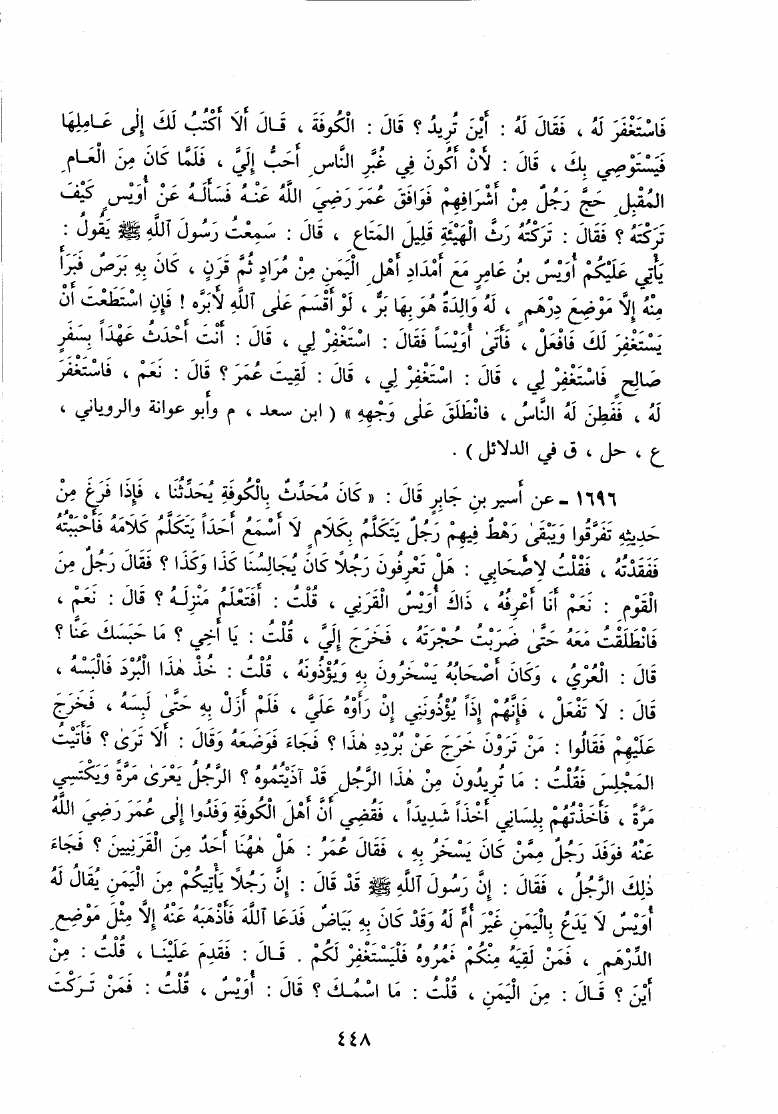 فَاسْتَغْفَرَ لَهُ ، فَقَالَ لَهُ : أَيْنَ تُرِيدُ ؟ قَالَ : الْكُوفَةَ ، قَـالَ أَلَا أَكْتُبُ لَكَ إِلَى عَـامِلِهَا
فَيَسْتَوْصِي بِكَ ، قَالَ : لَأَنْ أَكُونَ فِي غُبَّرِ النَّاسِ أَحَبُّ إِلَيَّ ، فَلَمَّا كَانَ مِنَ الْعَـامِ
المُقْبِلِ حَجَّ رَجُلٌ مِنْ أَشْرَافِهِمْ فَوَافَقَ عُمَرَ رَضِيَ اللَّهُ عَنْـهُ فَسَأَلَـهُ عَنْ أُوَيْسٍ كَيْفَ
تَرَكْتَهُ ؟ فَقَالَ : تَرَكْتُهُ رَثَّ الْهَيْئَةِ قَلِيلَ المَتَاعِ ، قَالَ : سَمِعْتُ رَسُولَ اللَّهِ ﷺ يَقُولُ :
يَأْتِي عَلَيْكُمْ أُوَيْسُ بنُ عَامِرٍ مَعَ أَمْدَادِ أَهْلِ الْيَمَنِ مِنْ مُرَادٍ ثُمَّ قَرَنٍ ، كَانَ بِهِ بَرَصٌ فَبَرَأَ
مِنْهُ إِلَّا مَوْضِعَ دِرْهَمٍ ، لَهُ وَالِدَةٌ هُوَ بِهَا بَرٌّ ، لَوْ أَقْسَمَ عَلَى اللَّهِ لَأَبَرَّه ! فَإِنِ اسْتَطَعْتَ أَنْ
يَسْتَغْفِرَ لَكَ فَافْعَلْ ، فَأَتَى أُوَيْسَاً فَقَالَ : اسْتَغْفِرْ لِي ، قَالَ : أَنْتَ أَحْدَثُ عَهْدَاً بِسَفَرٍ
صَالِحٍ فَاسْتَغْفِرْ لِي ، قَالَ : اسْتَغْفِرْ لِي ، قَالَ : لَقِيتَ عُمَرَ ؟ قَالَ : نَعَمْ ، فَاسْتَغْفَرَ
لَهُ ، فَفَطِنَ لَهُ النَّاسُ ، فانْطَلَقَ عَلَى وَجْهِهِ » ( ابن سعد ، م وأبو عوانة والروياني ،
ع ، حل ، ق في الدلائل ) .
١٦٩٦ - عن أسير بنِ جَابِرٍ قَالَ : « كَانَ مُحَدِّثٌ بِالْكُوفَةِ يُحَدِّثُنَا ، فَإِذَا فَرَغَ مِنْ
حَدِيثِهِ تَفَرَّقُوا وَيَبْقَى رَهْطٌ فِيهِمْ رَجُلٌ يَتَكَلَّمُ بِكَلَامٍ لَا أَسْمَعُ أَحَداً يَتَكَلَّمُ كَلَامَهُ فَأَحْبَبْتُهُ
فَفَقَدْتُهُ ، فَقُلْتُ لِأَصْحَابِي : هَلْ تَعْرِفُونَ رَجُلاً كَانَ يُجَالِسُنَا كَذَا وَكَذَا ؟ فَقَالَ رَجُلٌ مِنَ
الْقَوْمِ : نَعَمْ أَنَا أَعْرِفُهُ ، ذَاكَ أُوَيْسٌ الْقَرَنِي ، قُلْتُ : أَفَتَعْلَمُ مَنْزِلَـهُ ؟ قَالَ : نَعَمْ ،
فَانْطَلَقْتُ مَعَهُ حَتَّى ضَرَبْتُ حُجْرَتَهُ ، فَخَرَجَ إِلَيَّ ، قُلْتُ : يَا أَخِي ؟ مَا حَبَسَكَ عَنَّا ؟
قَالَ : الْعُرْيُ ، وَكَانَ أَصْحَابُهُ يَسْخَرُونَ بِهِ وَيُؤْذُونَهُ ، قُلْتُ : خُذْ هٰذَا الْبُرْدَ فَالْبَسْهُ ،
قَالَ : لَا تَفْعَلْ ، فَإِنَّهُمْ إِذَاً يُؤْذُونَنِي إِنْ رَأَوْهُ عَلَيَّ ، فَلَمْ أَزَلْ بِهِ حَتَّى لَبِسَهُ ، فَخَرَجَ
عَلَيْهِمْ فَقَالُوا : مَنْ تَرَوْنَ خَرَجَ عَنْ بُرْدِهِ هٰذَا ؟ فَجَاءَ فَوَضَعَهُ وَقَالَ : أَلَا تَرَى ؟ فَأَتَيْتُ
المَجْلِسَ فَقُلْتُ : مَا تُرِيدُونَ مِنْ هٰذَا الرَّجُلِ قَدْ آذَيْتُمُوهُ ؟ الرَّجُلُ يَعْرَى مَرَّةً وَيَكْتَسِي
مَرَّةً ، فَأَخَذْتُهُمْ بِلِسَانِي أَخْذَاً شَدِيدَاً ، فَقُضِي أَنَّ أَهْلَ الْكُوفَةِ وَفَدُوا إِلَى عُمَرَ رَضِيَ اللَّهُ
عَنْهُ فوَفَدَ رَجُلٌ مِمَّنْ كَانَ يَسْخَرُ بِهِ ، فَقَالَ عُمَرُ : هَلْ هٰهُنَا أَحَدٌ مِنَ الْقَرَنِيينَ ؟ فَجَاءَ
ذٰلِكَ الرَّجُلُ ، فَقَالَ : إِنَّ رَسُولَ اللَّهِ ﷺ قَدْ قَالَ : إِنَّ رَجُلاً يَأْتِيكُمْ مِنَ الْيَمَنِ يُقَالُ لَهُ
أُوَيْسٌ لَا يَدَعُ بِالْيَمَنِ غَيْرَ أُمٍّ لَهُ وَقَدْ كَانَ بِهِ بَيَاضٌ فَدَعَا اللَّهَ فَأَذْهَبَهُ عَنْهُ إِلَّا مِثْلَ مَوْضِعِ
الدِّرْهَمِ ، فَمَنْ لَقِيَهُ مِنْكُمْ فَمُرُوهُ فَلْيَسْتَغْفِرْ لَكُمْ . قَـالَ : فَقَدِمَ عَلَيْنَـا ، قُلْتُ : مِنْ
أَيْنَ ؟ قَـالَ : مِنَ الْيَمَنِ ، قُلْتُ : مَا اسْمُـكَ ؟ قَالَ : أُوَيْسٌ ، قُلْتُ : فَمَنْ تَـرَكْتَ
٤٤٨